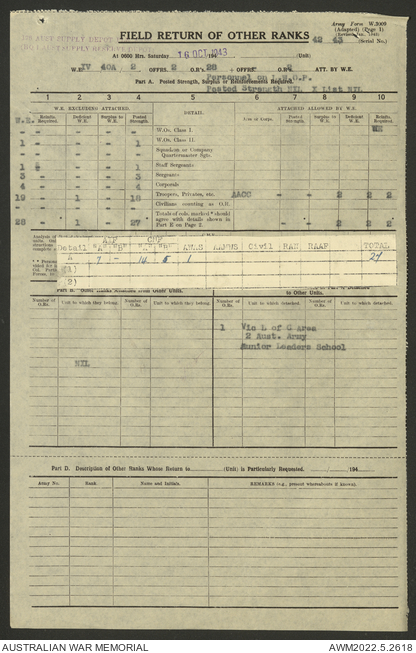 Army Form W.3009
(Adapted) (Page 1)
FIELD RETURN OF OTHER RANKS
42 43 (Serial No.)
At 0600 Hrs. Saturday 16 OCT 1943 194 (Unit)
W.E. IV 40A 2 OFFRS. 2 O.R's. 28 OFFRS. O.R's. 2 ATT. BY W.E.
Part A. Posted Strength, Surplus or Reinforcements Required.
Posted Strength NIL X List NIL
1 2 3 4 5 6 7 8 9 10
W.E. EXCLUDING ATTACHED. DETAIL ATTACHED ALLOWED BY W.E.
W.E. Reinfts. Required. Deficient W.E. Surplus to W.E. Posted Strength Arm or Corps. Posted Strength. Surplus to W.E. Deficient W.E. Reinfts. Required.
- - - - W.Os. Class I. NIL
1 - - - 1 W.Os. Class II.
- - - - Squadron or Company Quartermaster Sgts.
1 - - 1 Staff Sergeants
3 - - - 3 Sergeants
4 - - - 4 Corporals
19 - 1 - 18 Troopers, Privates, etc. AACC - - 2 2
- - - - Civilians counting as O.R.
28 - 1 - 27 Totals of cols. marked * should agree with details shown in Part E on Page 2. - - 2 2
Detail AIF CMF AWAS AAMWS Civil RAN RAAF TOTAL
A 7 - 14 5 1 27
(1)
(2)
to Other Units.
Number of O.Rs. Unit to which they belong. Number of O.Rs. Unit to which they belong. Number of O.Rs. Unit to which detached. Number of O.Rs. Unit to which detached.
NIL
1 Vic L of C Area
2 Aust. Army
Junior Leaders School
Part D. Description of Other Ranks Whose Return to (Unit) is Particularly Requested. 194
Army No. Rank. Name and Initials. REMARKS (e.g., present whereabouts if known).
AUSTRALIAN WAR MEMORIAL AWM2022.5.2618